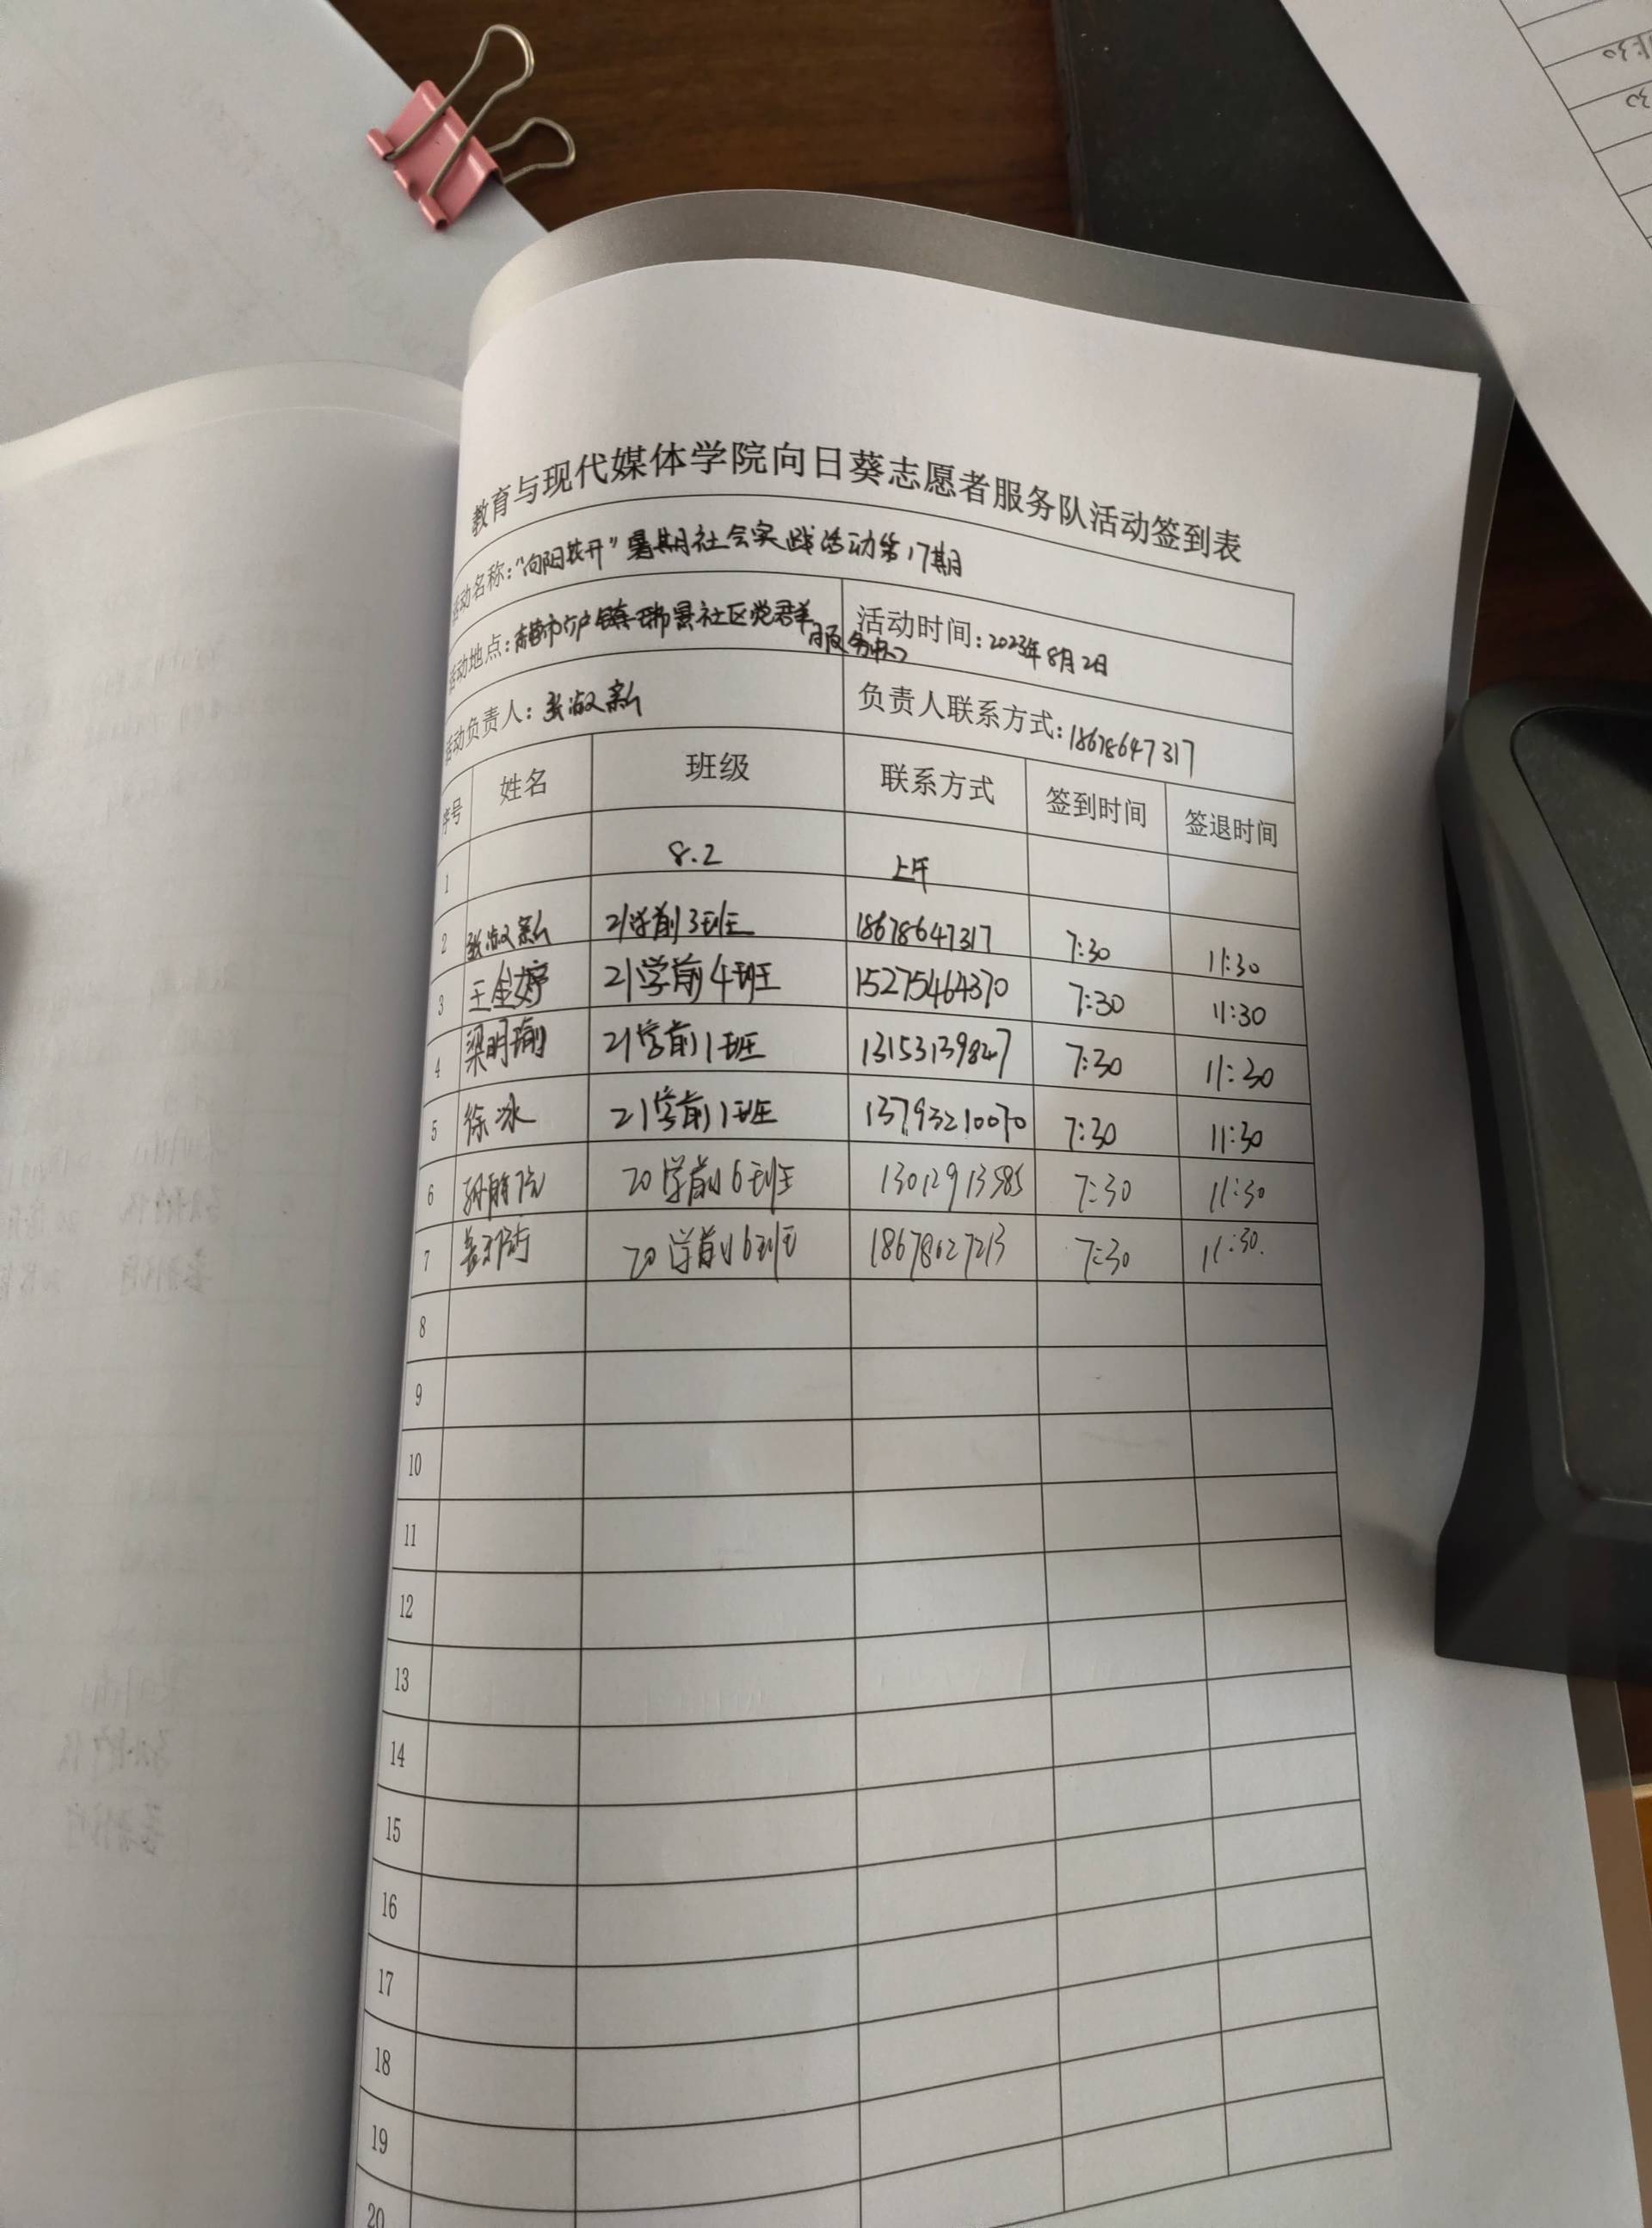 教育与现代媒体学院向日葵志愿者服务队活动签到表
活动名称："向阳花开"暑期社会实践活动第17期
活动地点：镇瑞景社区党群服务中心
活动时间：2023年8月2日
活动负责人：张淑新
负责人联系方式：18678647317
序号 姓名 班级 联系方式 签到时间 签退时间
1 8.2 上午
2 张淑新 21学前3班 18678647317 7:30 11:30
3 王金婷 21学前4班 15275464370 7:30 11:30
4 梁明瑜 21学前1班 13153139847 7:30 11:30
5 徐冰 21学前1班 13793210070 7:30 11:30
6 20学前6班 13012913585 7:30 11:30
7 20学前6班 18678627213 7:30 11:30.
8
9
10
11
12
13
14
15
16
17
18
19
20